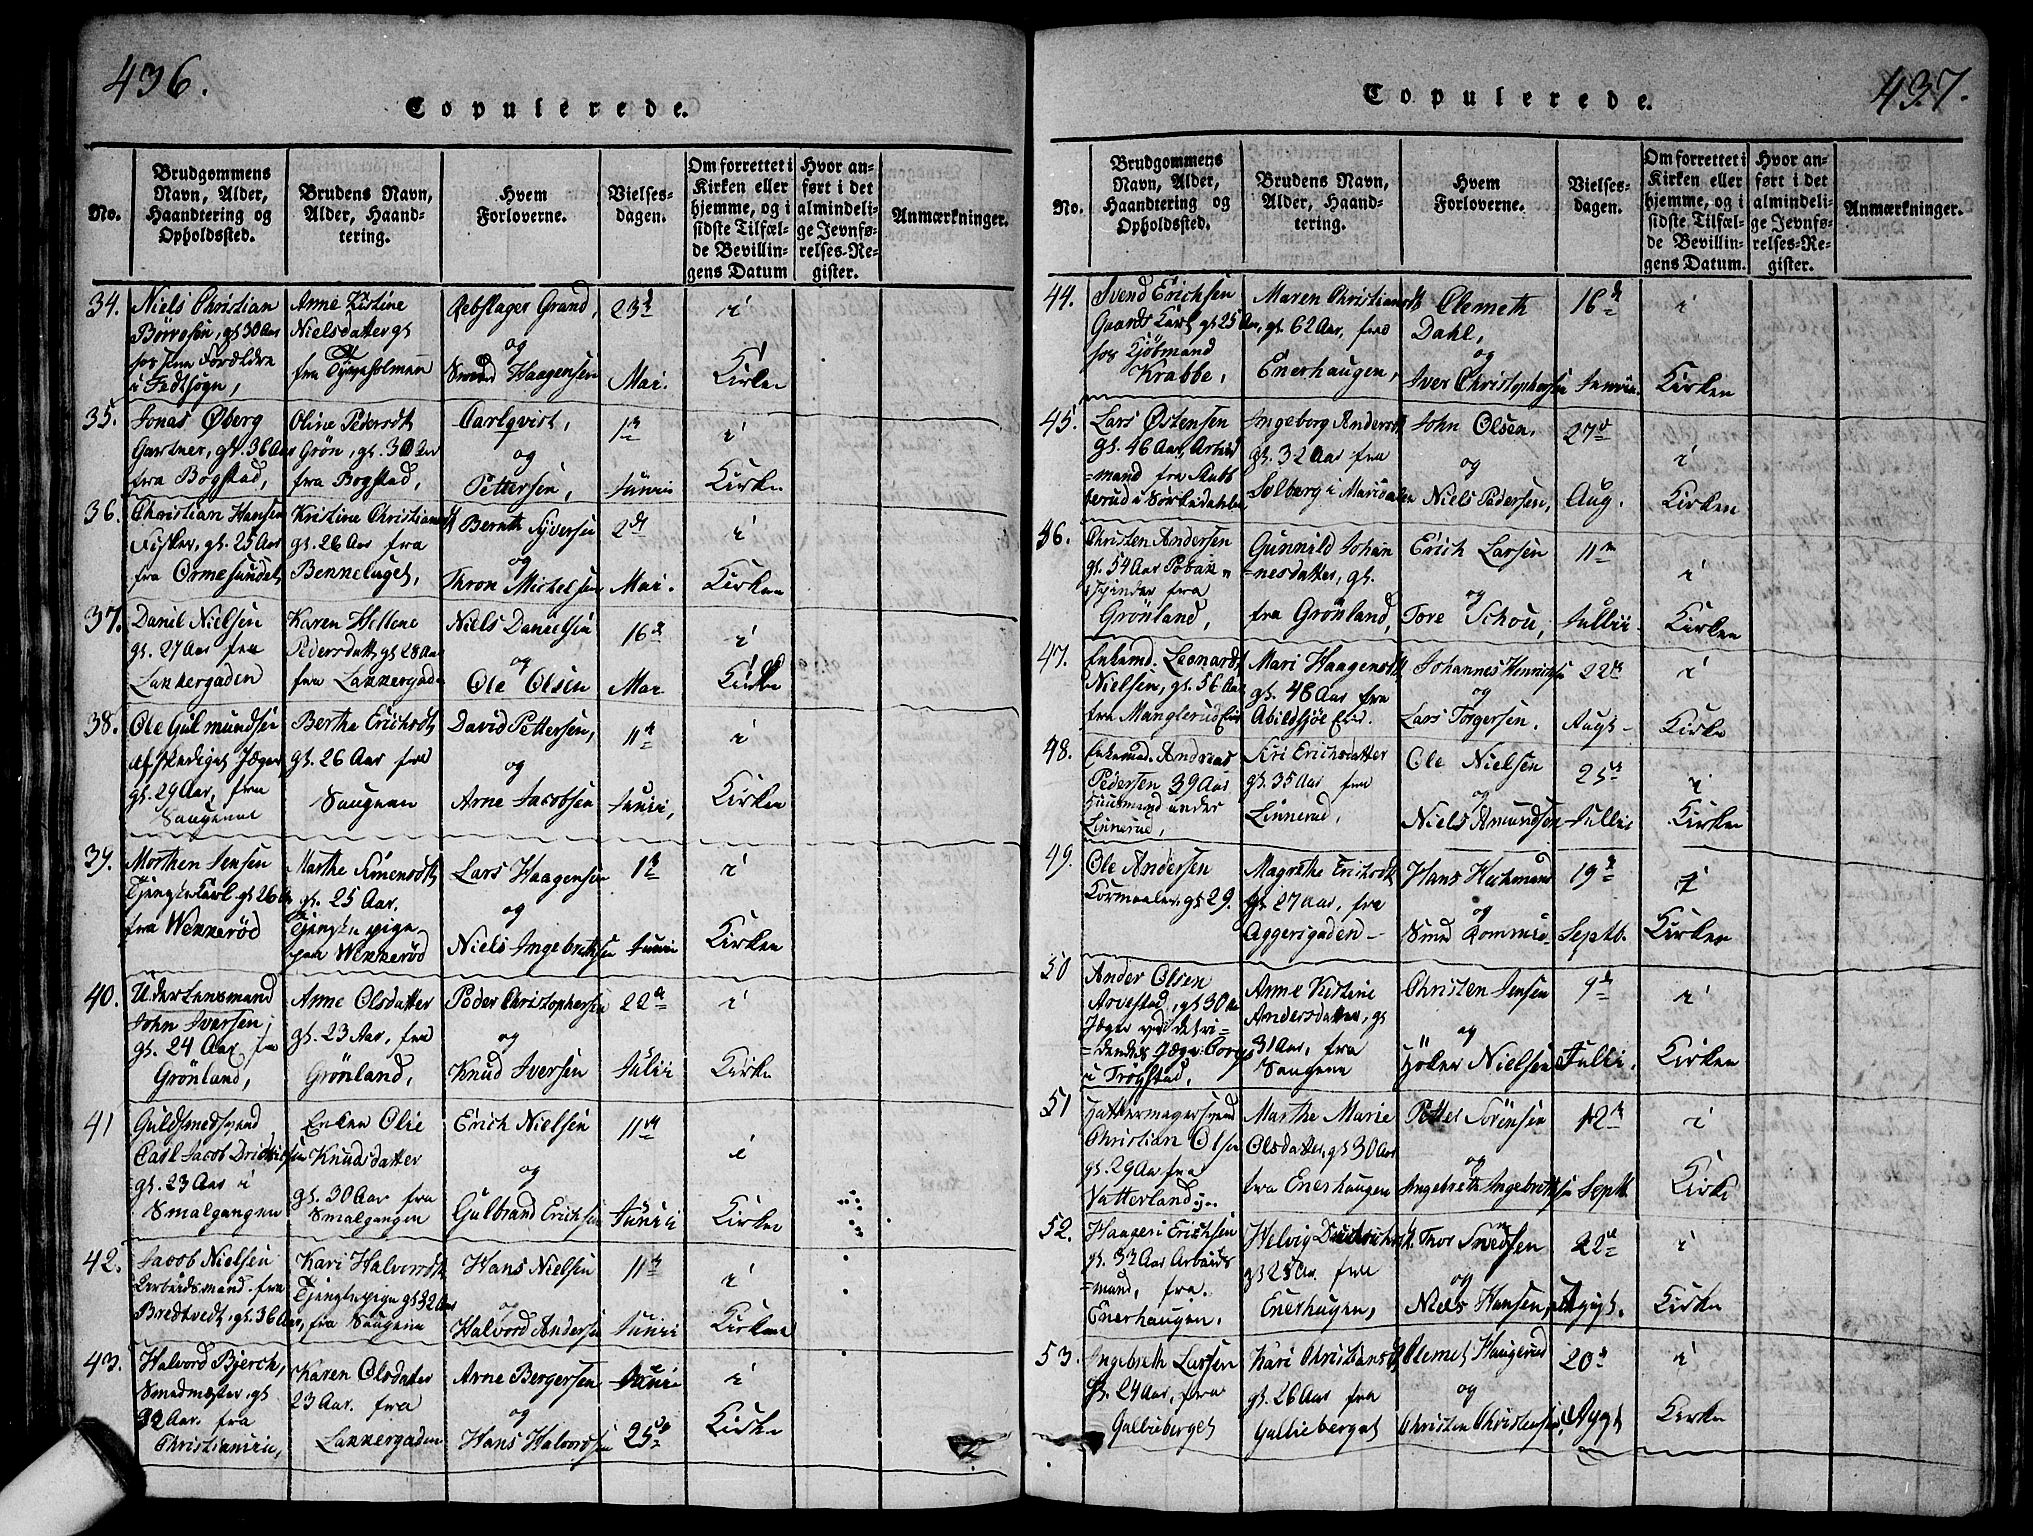 436.
Copulerede.
No.
Brudgommens
Navn, Alder,
Haandtering og
Opholdssted.
Brudens Navn,
Alder, Haand-
tering.
Hvem
Forloverne.
Vielses-
dagen.
Om forrettet i
Kirken eller
hjemme, og i
sidste Tilfæl-
de Bevillin-
gens Datum
Hvor an-
ført i det
almindeli-
ge Jevnfø-
relses-Re-
gister.
Anmærkninger.
34.
Niels Christian
gl. 30 Aar
hos sine Forældre
i
Anne Kirstine
Nielsdatter gl
fra
Rebslager Grand,
og
Svend Haagensen
23d
Mai.
i
Kirken
35.
Jonas Øberg
Gartner, gl. 36 Aar
fra Bogstad,
Oline Pedersdt
Grön, gl. 30 Aar
fra Bogstad,
Carlqvist,
og
Pettersen,
1te
Junii
i
Kirken
36.
Christian Hansen
Fisker, gl. 25 Aar
fra Ormesundet,
Kristine Christiansdt
gl. 26 Aar fra
Benneluget,
Bernth Syversen
og
Thron Michelsen
2de
Mai.
i
Kirken
37.
Daniel Nielsen
gl. 27 Aar fra
Lakkergaden
Karen Hellene
Pedersdatt, gl 28 Aar
fra Lakkergaden
Niels Danielsen
og
Ole Olsen
16de
Mai
i
Kirken
38.
Ole Gulmundsen
afskediget Jæger,
gl. 29 Aar, fra
Saugene
Berthe Erichsdt,
gl. 26 Aar fra
Saugene
David Pettersen,
og
Arne Jacobsen
11te
Junii,
i
Kirken
39.
Morthen Jensen
Tjenestekarl gl 26 Aar
fra Wekkerød
Marthe Simensdt,
gl. 25 Aar.
Tjenestepige
paa Wekkerød
Lars Haagensen
og
Niels Ingebrethsen
1te
Junii
i
Kirken
40.
Underlensmand
John Iversen,
gl. 24 Aar fra
Grönland,
Anne Olsdatter
gl. 23 Aar, fra
Grönland,
Peder Christophersen
og
Knud Iversen
22de
Julii
i
Kirke
41
Guldsmedsvend
Carl Jacob
gl. 23 Aar i
Smalgangen
Enken Olie
Knudsdatter
gl. 30 Aar fra
Smalgangen
Erich Nielsen
og
Gulbrand Erichsen
11te
Junii
i
Kirken
42.
Jacob Nielsen
Arbeidsmand fra
Bredtvedt, gl. 36 Aar,
Kari Halvorsdt
Tjenestepige gl 32 Aar
fra Saugene
Hans Nielsen
og
Halvord Andersen
11te
Junii
i
Kirken
43.
Halvord Bjerch,
Smedmester, gl
32 Aar. fra
Christiania,
Karen Olsdatter
23 Aar. fra
Lakkergaden
Arne Bergersen
og
Hans Halvordsen
Junii
25de
i
Kirke
437.
Copulerede.
No.
Brudgommens
Navn, Alder,
Haandtering og
Opholdssted.
Brudens Navn,
Alder, Haand-
tering.
Hvem
Forloverne.
Vielses-
dagen.
Om forrettet i
Kirken eller
hjemme, og i
sidste Tilfæl-
de Bevillin-
gens Datum.
Hvor an-
ført i det
almindeli-
ge Jevnfø-
relses-Re-
gister.
Anmærkninger.
44.
Svend Erichsen
Gaards Karl gl 25 Aar,
hos Kjöbmand
Krabbe,
Maren Christiansdt
gl. 62 Aar, fra
Enerhaugen,
Clemeth
Dahl,
og
Iver Christophersen
16de
Junii
i
Kirken
45.
Lars Østensen
gl. 46 Aar, Arbeid
=mand fra
i Sörkedahlen
Ingeborg Andersdt
gl. 32 Aar fra
Solberg i Maridalen
John Olsen,
og
Niels Pedersen,
27de
Aug.
i
Kirken
46.
Christen Andersen
gl. 54 Aar Tobak-
spinder fra
Grönland,
Gunnild Johan
=nesdatter, gl.
fra Grönland,
Erich Larsen
og
Tore Schou,
11te
Jullii.
i
Kirken
47.
Enkemd. Leonard
Nielsen, gl. 56 Aar
fra Manglerud Eie
Mari Haagensdt
gl. 48 Aar fra
Abildsjöe Eie.
Johannes Henrichsen
og
Lars Torgersen.
22de
Augs-
i
Kirke
48.
Enkemd. Andreas
Pedersen 39 Aar
Huusmand under
Linnerud,
Kri Erichsdatter
gl. 35 Aar fra
Linnerud,
Ole Nielsen
og
Niels Amundsen
25de
Jullii
i
Kirken
49.
Ole Andersen
gl 29.
Magrethe Erichsdt
gl 27 Aar, fra
Aggersgaden-
Hans Heckmand
og
Smed
19de
Septb.
i
Kirken
50
Ander Olsen
gl 30 Aar
Jæger ved det ri-
Jæger Corps
i Trögstad.
Anne Kistine
Andersdatter, gl
31 Aar, fra
Saugene
Christen Jensen
og
Höker Nielsen
9de
Julli.
i
Kirken
51
Hattemagersvend
Christian Olsen
gl. 29 Aar fra
Vatterland
Marthe Marie
Olsdatter, gl 30 Aar
fra Enerhaugen
Petter Sörensen
og
Ingebreth Ingebrethsen
12te
Septb
i
Kirke
52.
Haagen Erichsen
gl. 32 Aar Arbeids
=mand, fra.
Enerhaugen.
Helvig
gl 25 Ar. fra
Enerhaugen,
Thor Svedsen
og
Niels Hansen,
22de
i
Kirke
53.
Ingebreth Larsen
gl. 24 Aar, fra
Galleberget
Kari Christiansdt
gl. 26 Aar fra
Galleberget
Clemet Haugerud
og
Christen Christensen,
20de
i
Kirke